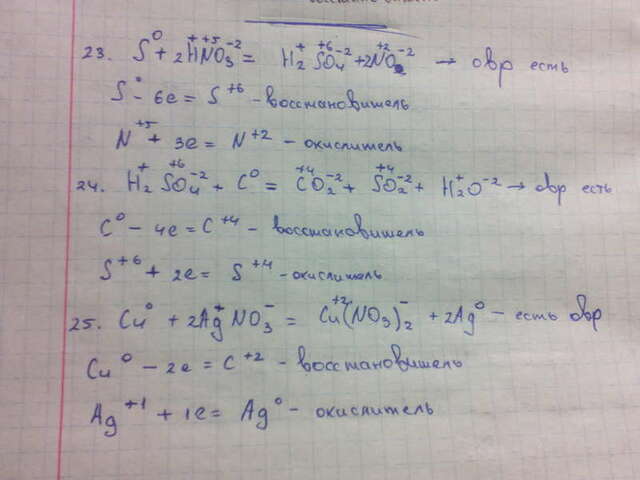 23. S⁰ + 2H⁺N⁺⁵O₃⁻² = H₂⁺S⁺⁶O₄⁻² + 2N⁺²O⁻² → овр есть
S⁰ - 6e = S⁺⁶ - восстановитель
N⁺⁵ + 3e = N⁺² - окислитель
24. H₂⁺S⁺⁶O₄⁻² + C⁰ = C⁺⁴O₂⁻² + S⁺⁴O₂⁻² + H₂⁺O⁻² → овр есть
C⁰ - 4e = C⁺⁴ - восстановитель
S⁺⁶ + 2e = S⁺⁴ - окислитель
25. Cu⁰ + 2Ag⁺NO₃⁻ = Cu⁺²(NO₃)₂⁻ + 2Ag⁰ - есть овр
Cu⁰ - 2e = C⁺² - восстановитель
Ag⁺¹ + 1e = Ag⁰ - окислитель